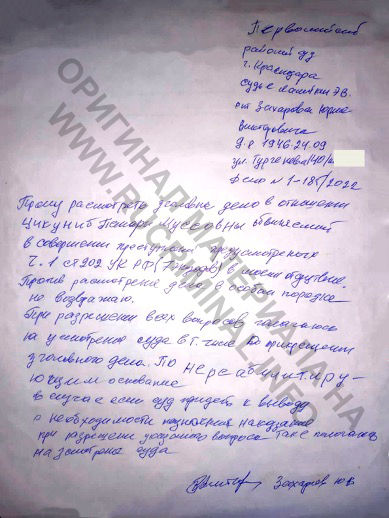 Первомайский
районый суд
г. Краснодара
судье
от Захарова Юрия
Викторовича
д.р 1946.24.09
ул. Тургенева 140/
Дело N 1-185/2022
Прошу расмотреть уголовне дело в отношении
Цикуниб Тамары Куссовны обвиняемой
в совершении преступления предусмотреных
ч. 1 ст 202 УК РФ (7 эпизодов) в моем отсутствие.
Против расмотрение дела в особом порядке
не возражаю.
При разрешении всех вопросов полагаюсь
на усмотрение суда в т. числе о прекращении
уголовного дела. По нереабилитиру-
ющим основание
В случае если суд придёть к выводу
о необходимости назначения наказание
при разрешении указаного вопроса таке полагаюсь
на усмотрене суда
Захаров Ю.В
ОРИГИНАЛ МАТЕРИАЛА НА
WWW.RUCRIMINAL.INFO